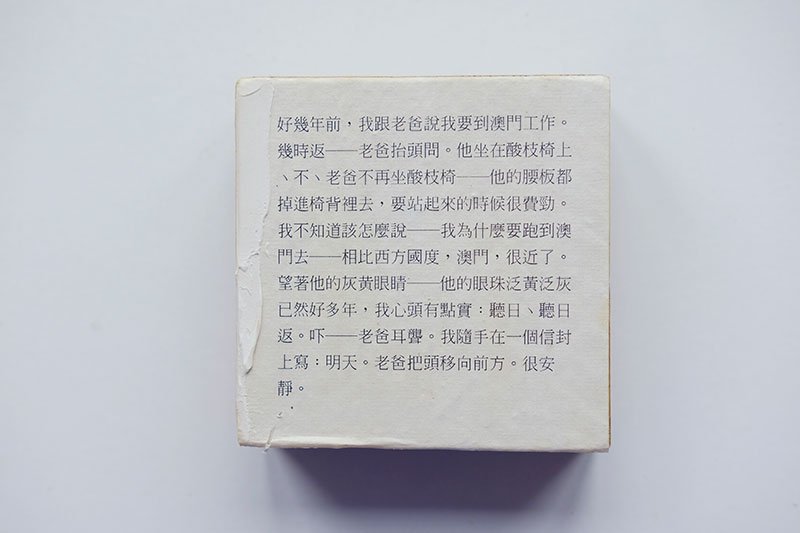 好幾年前，我跟老爸說我要到澳門工作。
幾時返——老爸抬頭問。他坐在酸枝椅上
、不、老爸不再坐酸枝椅——他的腰板都
掉進椅背裡去，要站起來的時候很費勁。
我不知道該怎麼說——我為什麼要跑到澳
門去——相比西方國度，澳門，很近了。
望著他的灰黃眼睛——他的眼珠泛黃泛灰
已然好多年，我心頭有點實：聽日、聽日
返。吓——老爸耳聾。我隨手在一個信封
上寫：明天。老爸把頭移向前方。很安
靜。